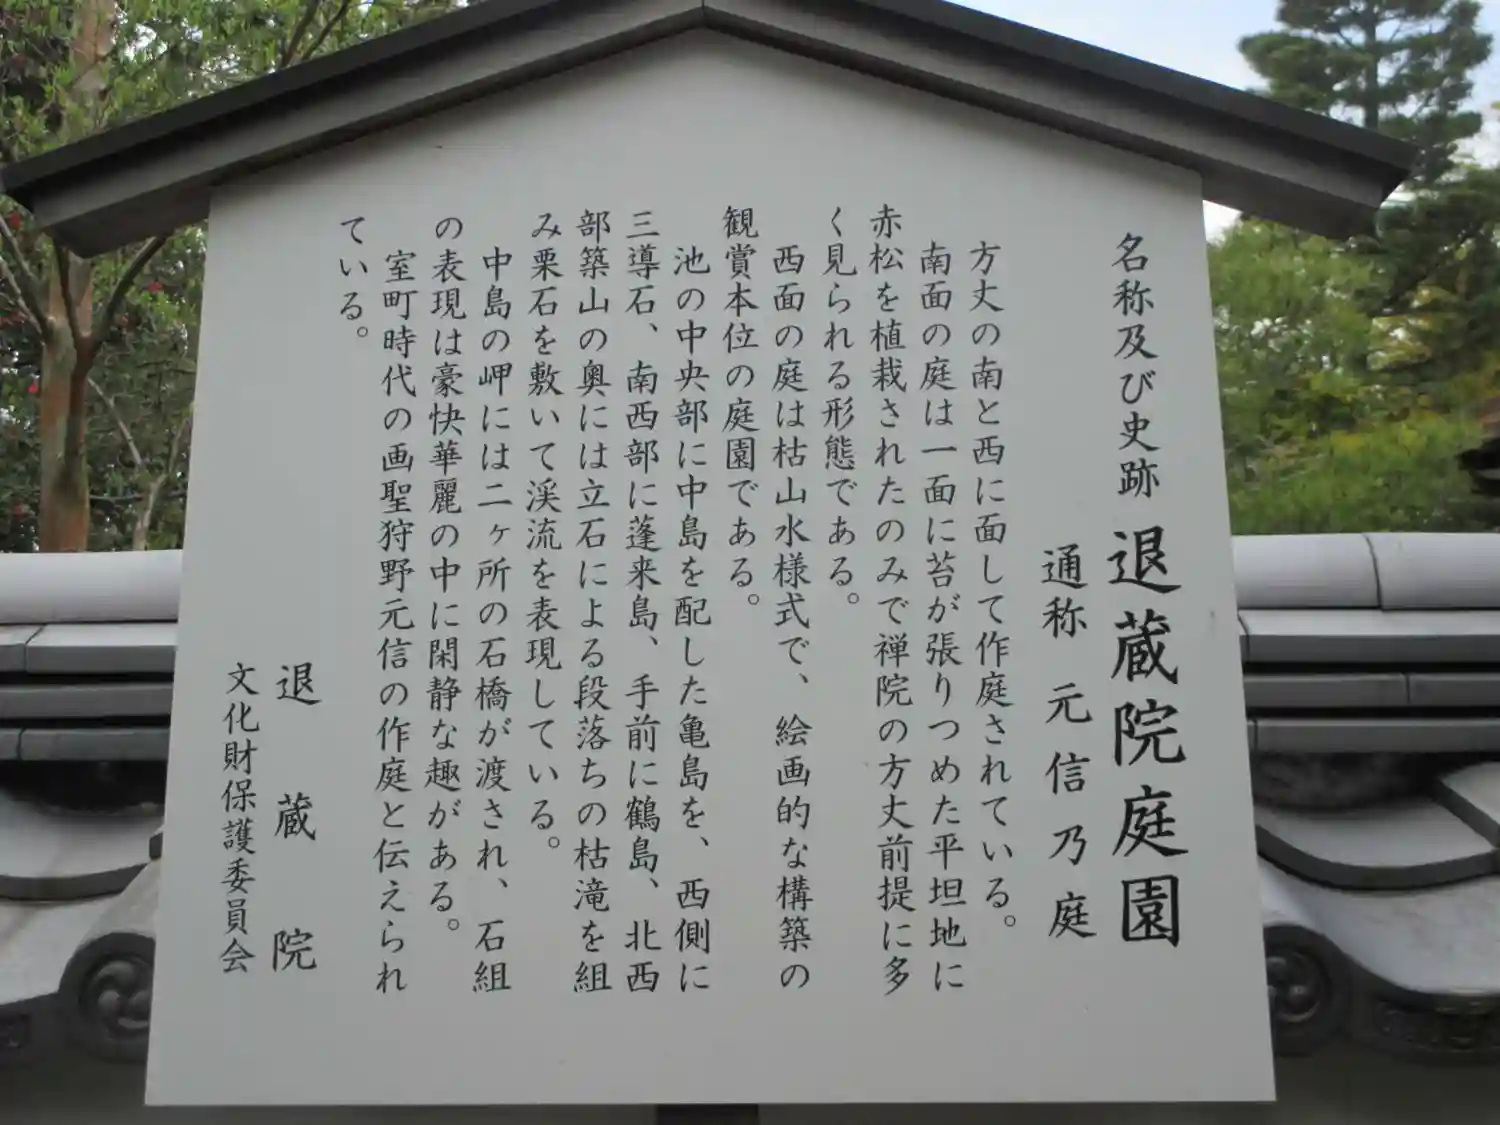 名称及び史跡 退蔵院庭園
通称 元信乃庭
方丈の南と西に面して作庭されている。
南面の庭は一面に苔が張りつめた平坦地に
赤松を植栽されたのみで禅院の方丈前提に多
く見られる形態である。
西面の庭は枯山水様式で、絵画的な構築の
観賞本位の庭園である。
池の中央部に中島を配した亀島を、西側に
三導石、南西部に蓬来島、手前に鶴島、北西
部築山の奥には立石による段落ちの枯滝を組
み栗石を敷いて渓流を表現している。
中島の岬には二ヶ所の石橋が渡され、石組
の表現は豪快華麗の中に閑静な趣がある。
室町時代の画聖狩野元信の作庭と伝えられ
ている。
退蔵院
文化財保護委員会